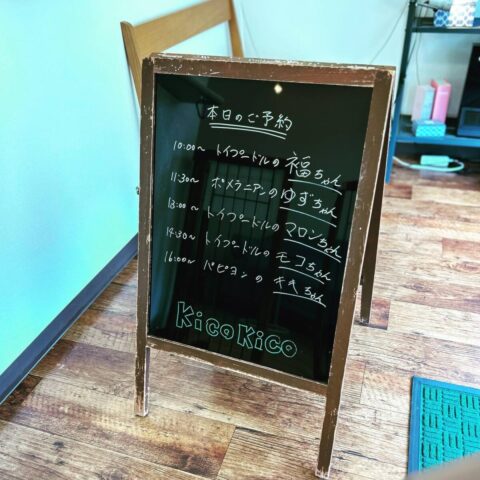 本日のご予約
10:00～ トイプードルの 福ちゃん
11:30～ ポメラニアンの ゆずちゃん
13:00～ トイプードルの マロンちゃん
14:30～ トイプードルの モコちゃん
16:00～ パピヨンの キキちゃん
KicoKico